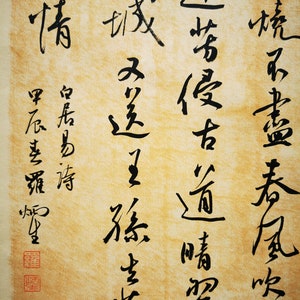 燒不盡春風吹
遠芳侵古道晴翠
城又送王孫去萋
情
白居易詩
甲辰春羅炳生